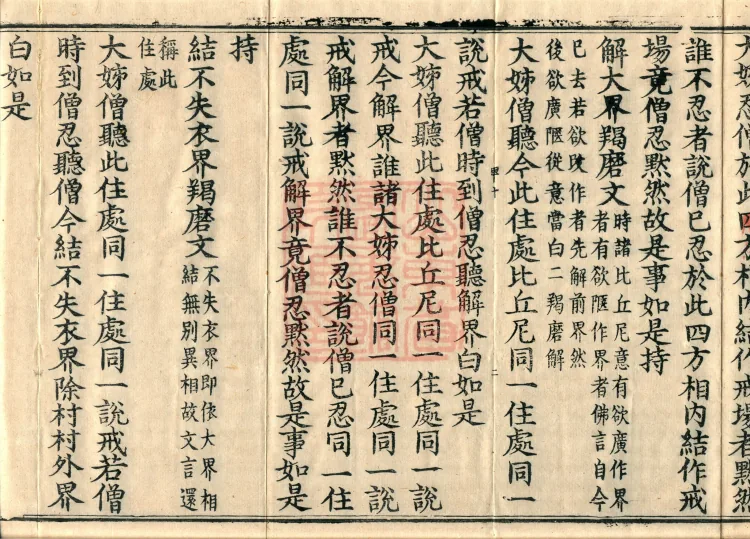 大姊忍僧於此四方相內結作戒場者默然
誰不忍者說僧已忍於此四方相內結作戒
場竟僧忍默然故是事如是持
解大界羯磨文時諸比丘尼意有欲廣作界
者有欲陿作界者佛言自今
已去若欲改作者先解前界然
後欲廣陿從意當白二羯磨解
大姊僧聽今此住處比丘尼同一住處同一
說戒若僧時到僧忍聽解界白如是
大姊僧聽此住處比丘尼同一住處同一說
戒今解界誰諸大姊忍僧同一住處同一說
戒解界者默然誰不忍者說僧已忍同一住
處同一說戒解界竟僧忍默然故是事如是
持
結不失衣界羯磨文不失衣界即依大界相
結無別異相故文言還
稱此
住處
大姊僧聽此住處同一住處同一說戒若僧
時到僧忍聽僧今結不失衣界除村村外界
白如是